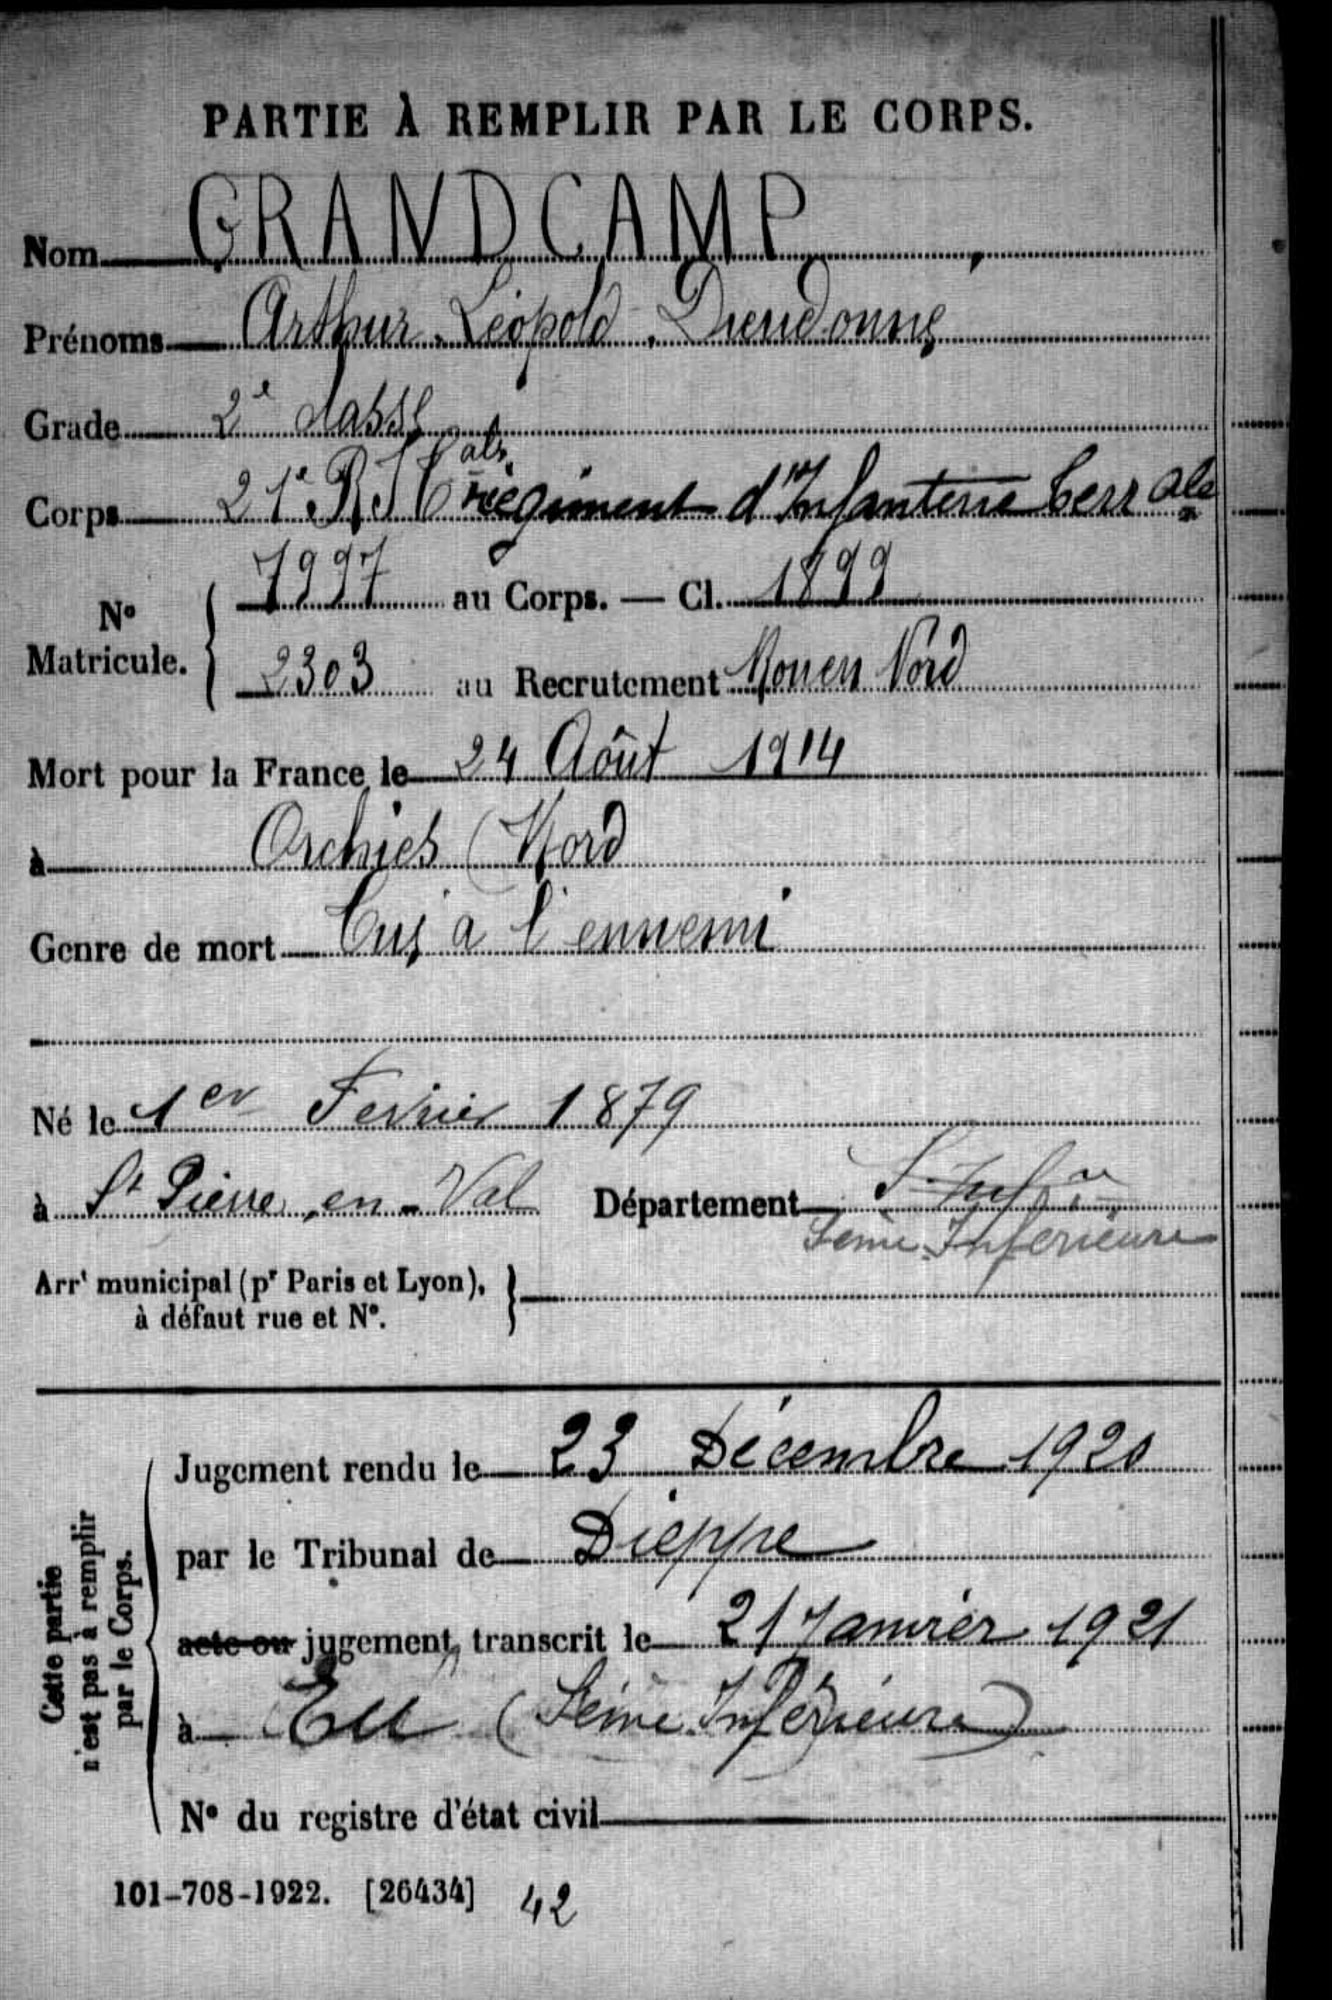 PARTIE À REMPLIR PAR LE CORPS.
Nom GRANDCAMP
Prénoms Arthur Léopold Dieudonné
Grade 2e classe
Corps 21e R I T als régiment d'Infanterie Terr ale
No Matricule. 7997 au Corps. — Cl. 1899
2303 au Recrutement Rouen Nord
Mort pour la France le 24 Août 1914
à Orchies (Nord
Genre de mort Tué à l'ennemi
Né le 1er Fevrier 1879
à St Pierre en-Val Département S. Infre
Seine Inférieure
Arrt municipal (pr Paris et Lyon),
à défaut rue et No.
Cette partie
n'est pas à remplir
par le Corps.
Jugement rendu le 23 Décembre 1920
par le Tribunal de Dieppe
acte ou jugement transcrit le 21 Janvier 1921
à Eu (Seine Inférieure)
No du registre d'état civil
101-708-1922. [26434] 42